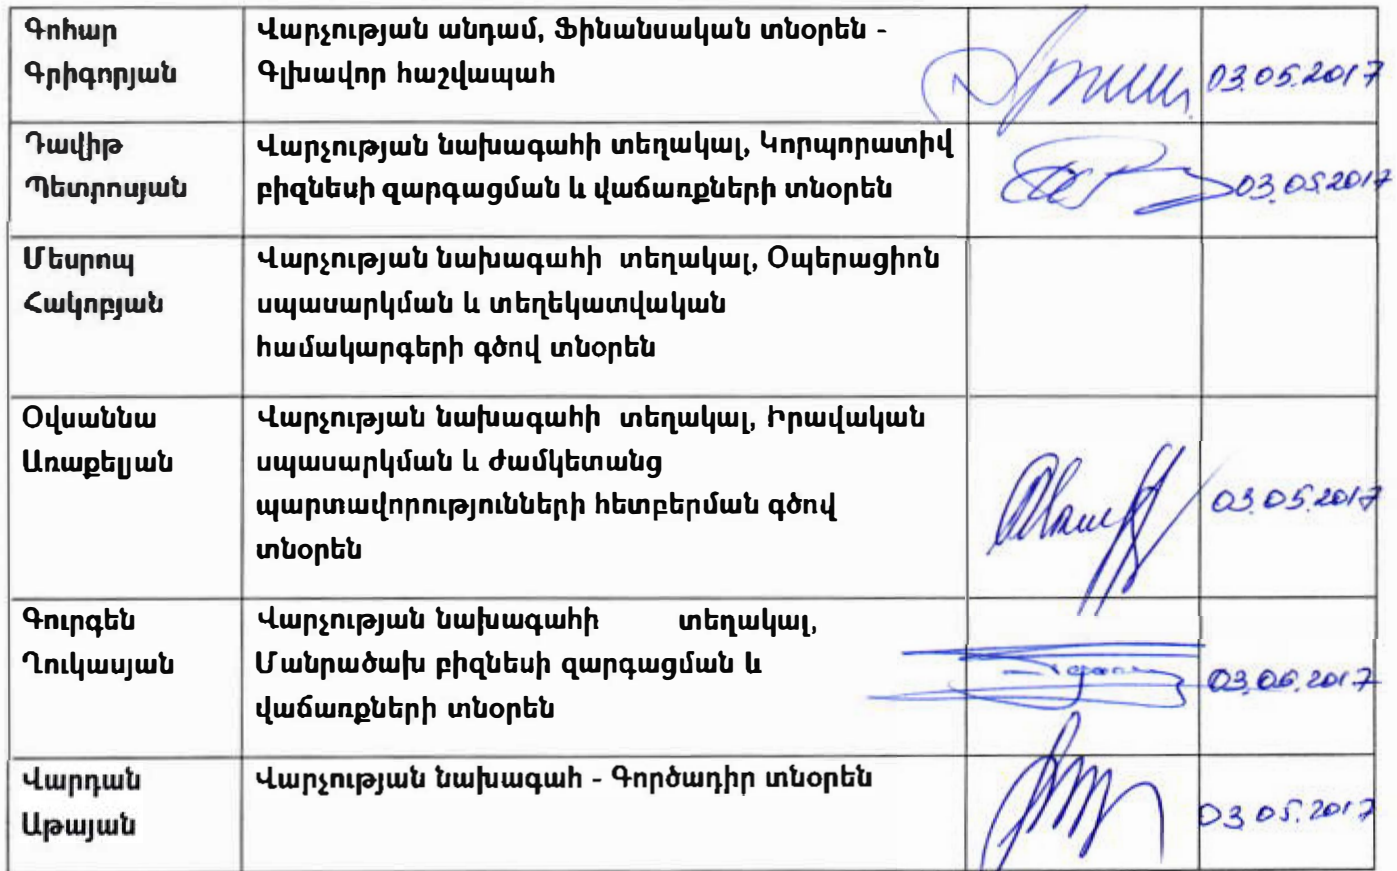 Գոհար
Գրիգորյան
Վարչության անդամ, Ֆինանսական տնօրեն -
Գլխավոր հաշվապահ
03.05.2017
Դավիթ
Պետրոսյան
Վարչության նախագահի տեղակալ, Կորպորատիվ
բիզնեսի զարգացման և վաճառքների տնօրեն
03.05.2017
Մեսրոպ
Հակոբյան
Վարչության նախագահի տեղակալ, Օպերացիոն
սպասարկման և տեղեկատվական
համակարգերի գծով տնօրեն
Օվսաննա
Առաքելյան
Վարչության նախագահի տեղակալ, Իրավական
սպասարկման և ժամկետանց
պարտավորությունների հետբերման գծով
տնօրեն
03.05.2017
Գուրգեն
Ղուկասյան
Վարչության նախագահի տեղակալ,
Մանրածախ բիզնեսի զարգացման և
վաճառքների տնօրեն
03.06.2017
Վարդան
Աթայան
Վարչության նախագահ - Գործադիր տնօրեն
03.05.2017